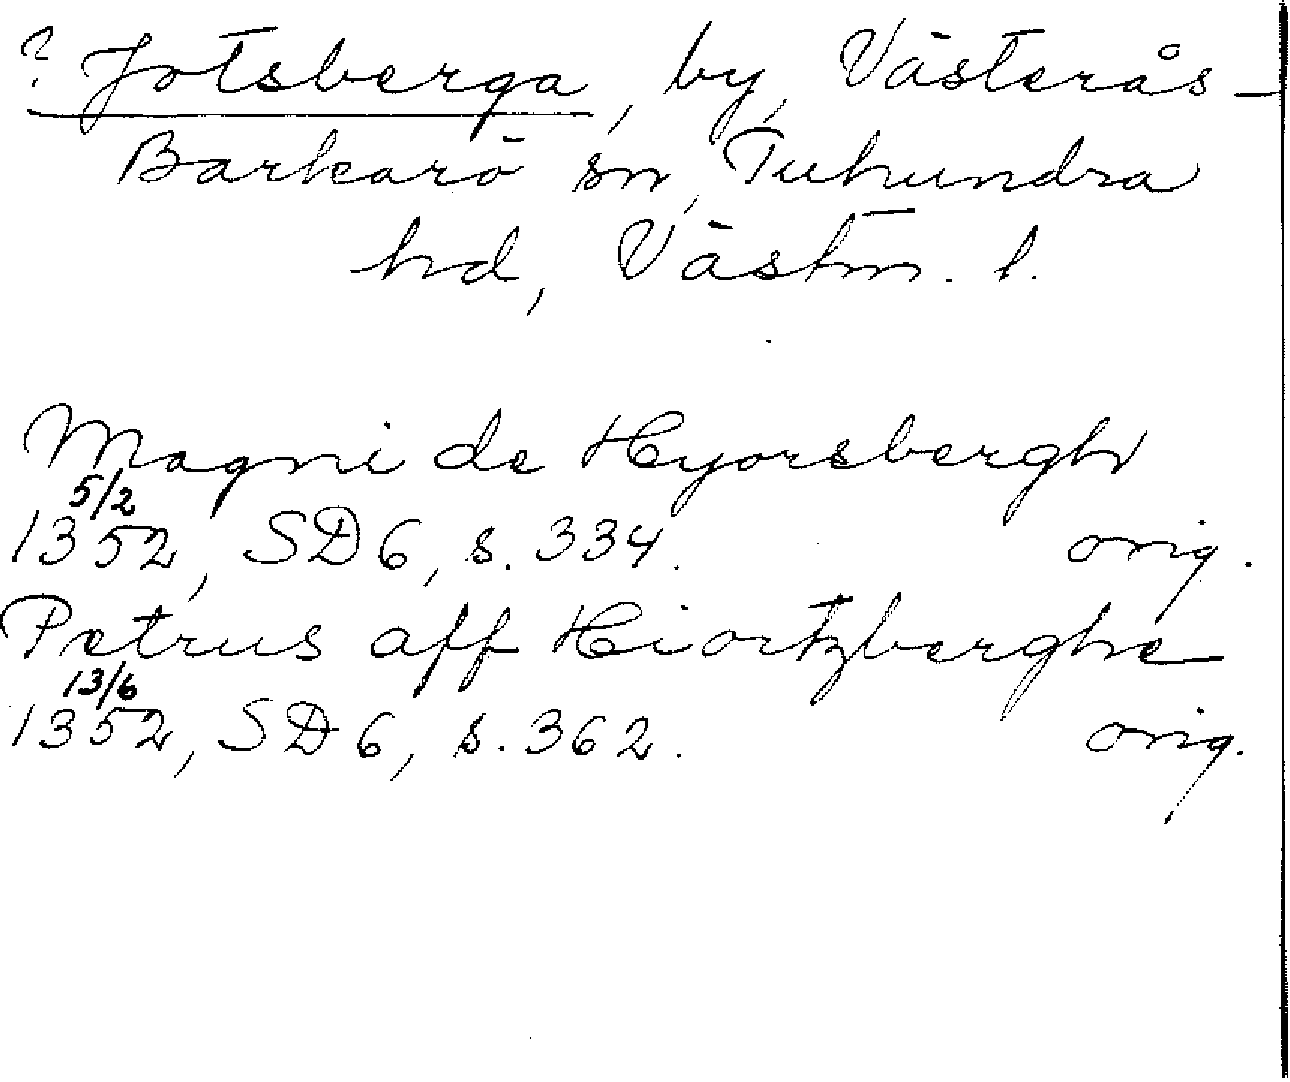 ? Jotsberga, by, Västerås-
Barkarö sn, Tuhundra
hd, Västm. l.
Magni de Hyorsbergh
5/2
1352, SD 6, s. 334. orig.
Petrus aff Hiortzberghe
13/6
1352, SD 6, s. 362. orig.